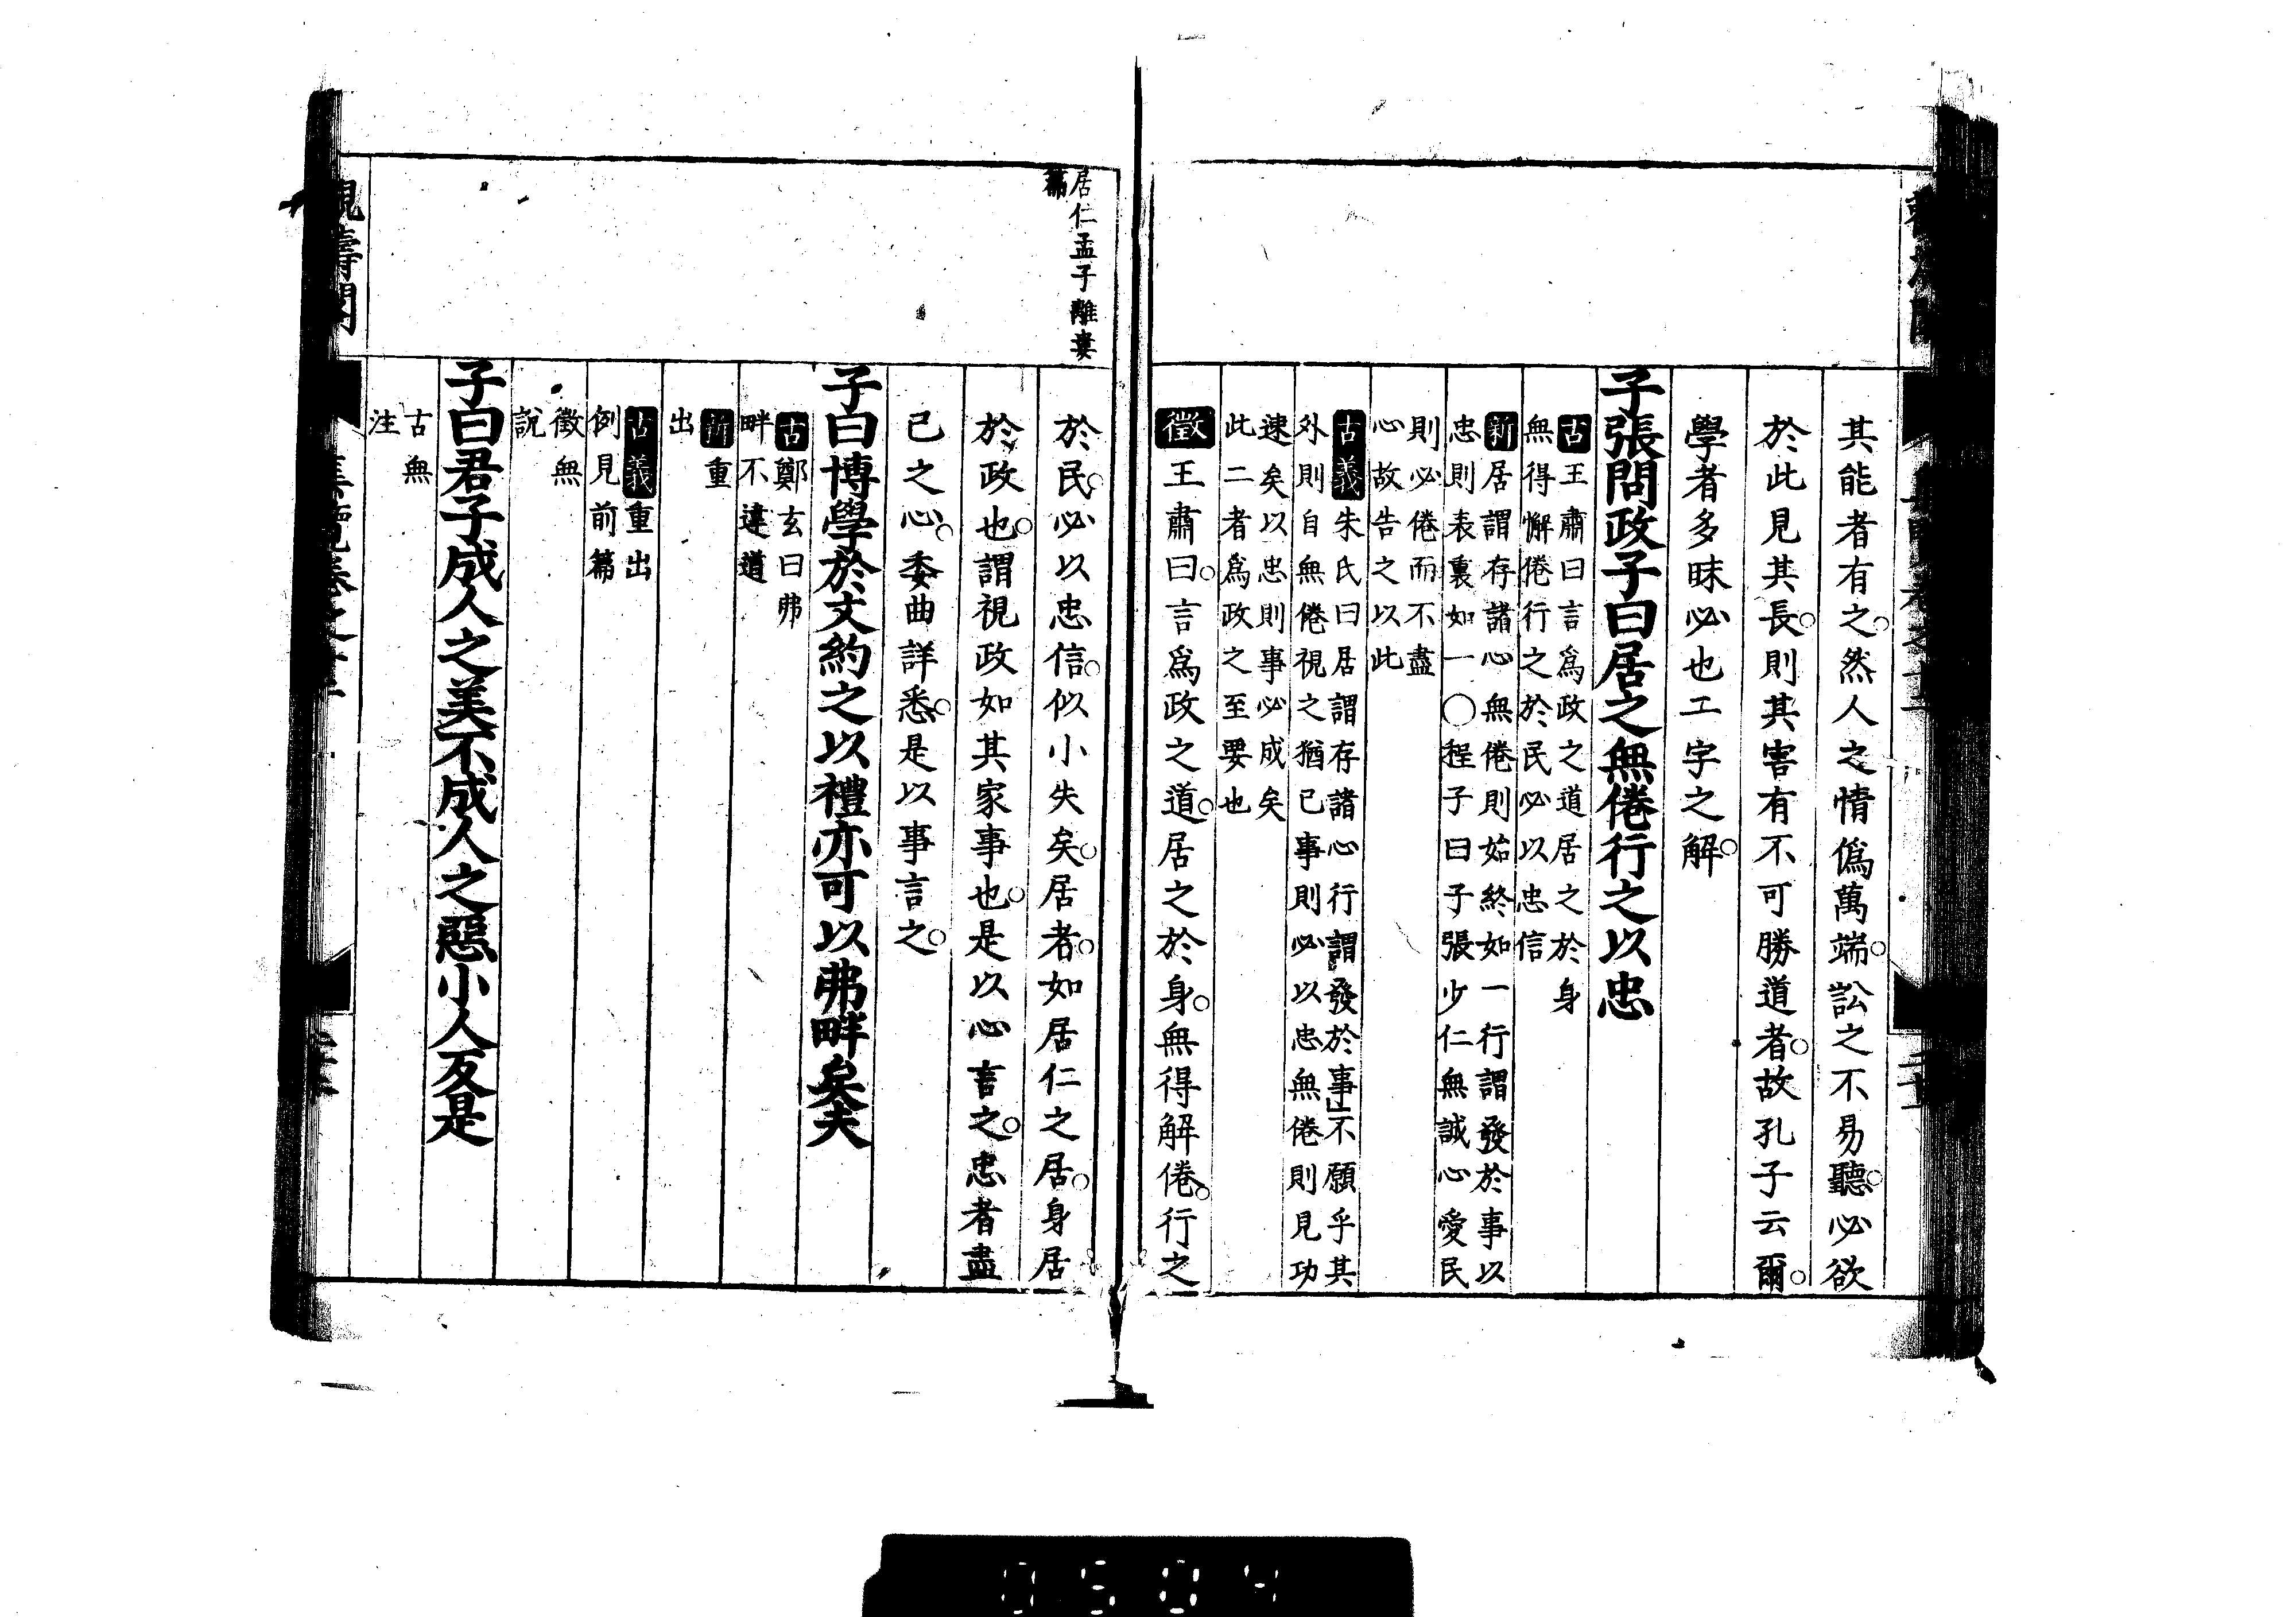 其能者有之然人之情僞萬端訟之不易聽必欲
於此見其長則其害有不可勝道者故孔子云爾
學者多昧必也二字之解
子張問政子曰居之無倦行之以忠
古王肅曰言爲政之道居之於身
無得懈倦行之於民必以忠信
新居謂存諸心無倦則始終如一行謂發於事以
忠則表裏如一〇程子曰子張少仁無誠心愛民
則必倦而不盡
心故告之以此
古義朱氏曰居謂存諸心行謂發於事」不願乎其
外則自無倦視之猶己事則必以忠無倦則見功
速矣以忠則事必成矣
此二者爲政之至要也
徵王肅曰言爲政之道居之於身無得解倦行之
居仁孟子離婁
篇
於民必以忠信似小失矣居者如居仁之居身居
於政也謂視政如其家事也是以心言之忠者盡
己之心委曲詳悉是以事言之
子曰博學於文約之以禮亦可以弗畔矣夫
古鄭玄曰弗
畔不違道
新重
出
古義重出
例見前篇
徵無
說
子曰君子成人之美不成人之惡小人反是
古無
注
0504